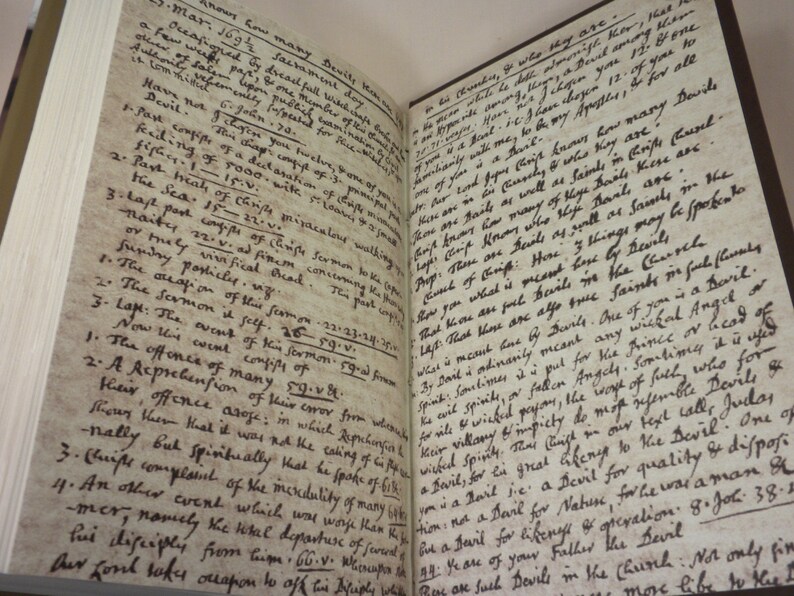 knows how many Devils there are
27. Mar. 169½ Sacrament day.
Occasioned by dreadfull Witchcraft broke out
a few weeks past, & one member of this Church &
other of Salem upon publick examination by Civil
Authority vehemently suspected for she-witches &
it. Committed
6. John. 70.
Have not I chosen you twelve, & one of you
Devil.
This chapt consist of 3. principal part
1. Part consists of a declaration of Christs miraculous
feeding of 5000. with 5. loaves & 2 small
fishes. 1 — 15. v.
2. Part treats of Christs miraculous walking upon
the Sea. 15 — 22. v.
3. Last part consists of Christs Sermon to the Caper-
naites 22. v. ad finem concerning the
or truly vivifical bread. This part consist
sundry particles. viz.
1. The occasion of this Sermon. 22. 23. 24. 25. v.
2. The Sermon it self. 26 — 59. v.
3. Last: The event of this Sermon. 59. ad finem
Now this event consists of
1. The offence of many 59. v. &.
2. A Reprehension of their error from whence
their offence arose: in which Reprehension he
shows them that it was not the eating of his flesh
-nally but spiritually that he spake of 61.
3. Christs complaint of the incredulity of many 64.
4. An other event which was worse than the
-mer, namely the total departure of several of
his disciples from him. 66. v. whereupon
Our Lord takes occasion to ask his Disciples
in his Churches, & who they are.
in the mean while he doth admonish them, that
an Hypocrite among them, a Devil among them
70. 71. verses, Have not I chosen you 12. & one
of you is a Devil. i.e. I have chosen 12. of you to
familiarity with me, to be my Apostles, & for all
one of you is a Devil.
Our Lord Jesus Christ knows how many Devils
there are in his Church & who they are.
There are Devils as well as Saints in Christs Church.
Christ knows how many of these Devils there are.
Last: Christ knows who these Devils are.
Prop: There are Devils as well as Saints in the
Church of Christ: Here: 3 things may be spoken to
show you what is meant here by Devils
That there are such Devils in the Church
Last. That there are also true Saints in such Churches
what is meant here by Devils. One of you is a Devil.
By Devil is ordinarily meant any wicked Angel or
Spirit: Sometimes it is put for the Prince or head of
the evil Spirits, or fallen Angels. Sometimes it is used
for vile & wicked persons, the worst of such, who for
their villany & impiety do most resemble Devils &
wicked Spirits. Thus Christ in our text calls Judas
a Devil, for his great likeness to the Devil. One of
you is a Devil i.e. a Devil for quality & disposi
-tion: not a Devil for Nature, for he was a man &
but a Devil for likeness & operation. 8. Joh. 38.
44: Ye are of your Father the Devil
There are such Devils in the Church: Not only
more like to the